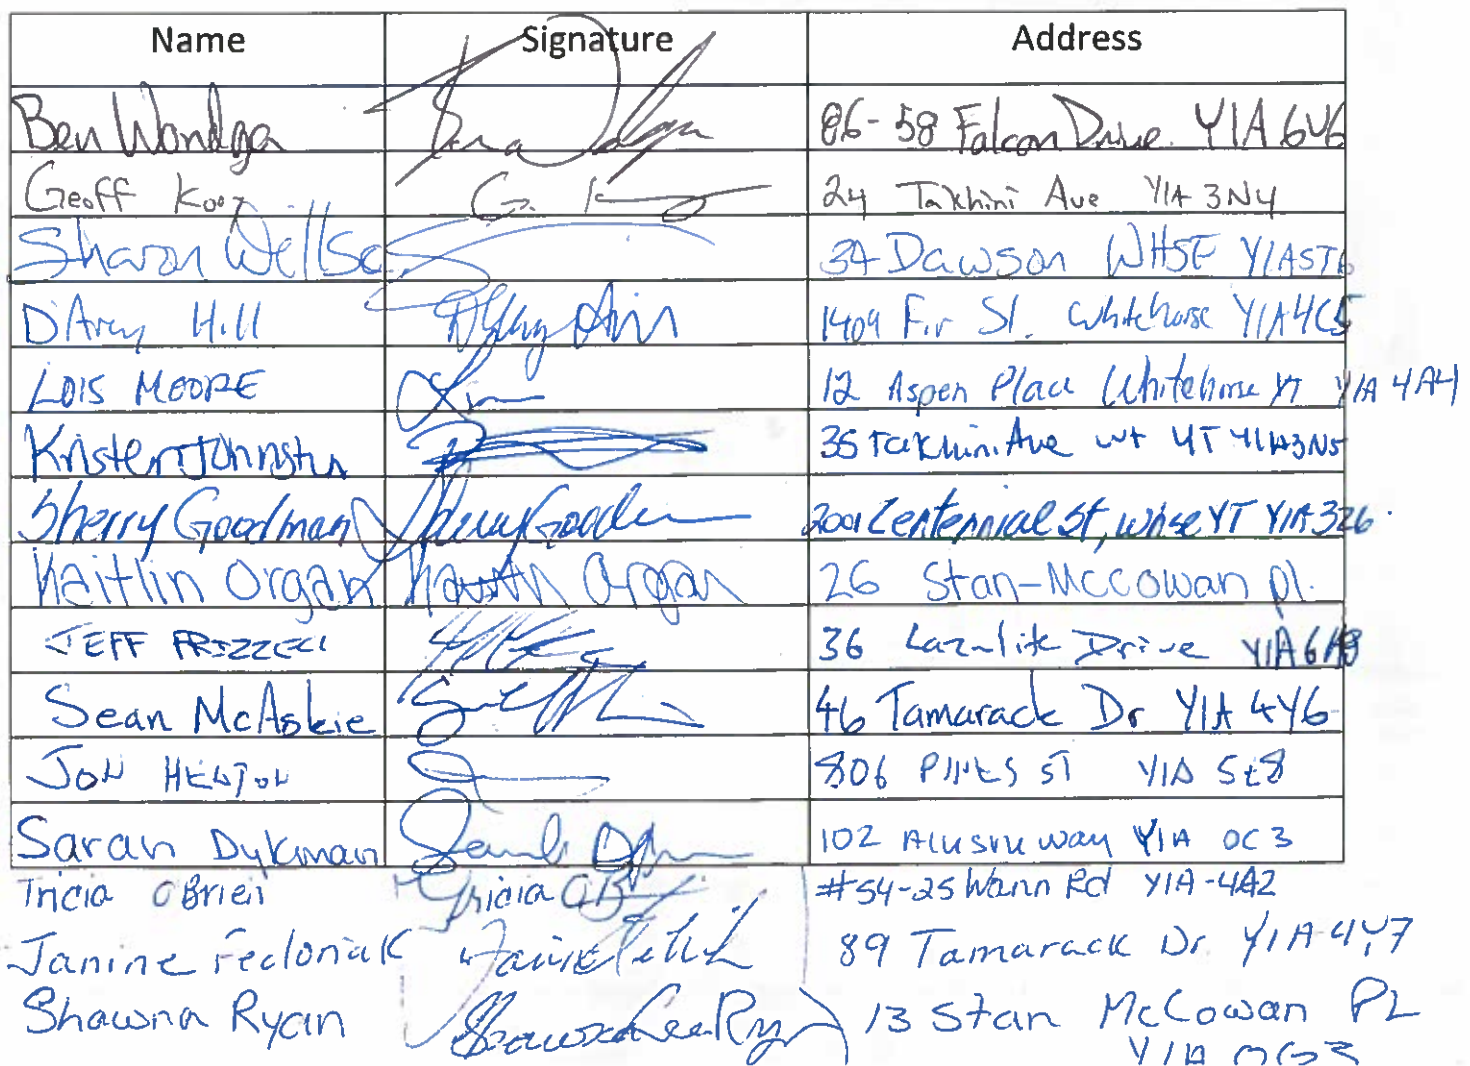 Name Signature Address
Ben Wondga 86-58 Falcon Drive Y1A 6V6
Geoff Koo G. K 24 Takhini Ave Y1A 3N4
Sharon Wellsc 34 Dawson WHSE Y1A5T6
D'Arcy Hill 1409 Fir St. Whitehorse Y1A4C5
LOIS MOORE 12 Aspen Place Whitehorse YT Y1A 4A4
Kristen Johnston 35 Takhini Ave WH YT Y1A3N5
Sherry Goodman Sherry Goodm 2001 Centennial St, Whse YT Y1A3Z6.
Kaitlin Organ Kaitlin Organ 26 Stan-McCowan pl.
JEFF FRIZZELL 36 Lazulite Drive Y1A6A8
Sean McAskie 46 Tamarack Dr Y1A 4Y6
JON HELTON 806 PINES ST Y1A 5E8
Sarah Dykman Sarah 102 Alusru Way Y1A 0C3
Tricia O'Brien Tricia OB #54-25 Wann Rd Y1A-4A2
Janine Fedoriak 89 Tamarack Dr Y1A-4Y7
Shawna Ryan Shawna Lee Ryan 13 Stan McCowan PL
Y1A